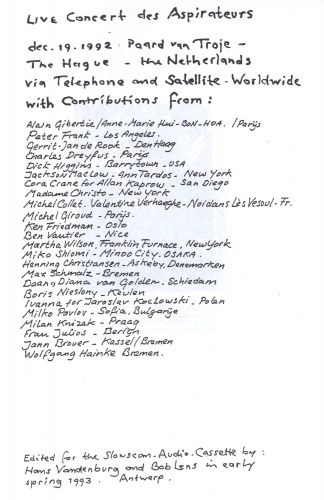 LIVE Concert des Aspirateurs
dec. 19. 1992 - Paard van Troje -
The Hague - the Netherlands
via Telephone and Satellite - Worldwide
with Contributions from :
Alain Gibertie / Anne-Marie Hui-BON-HOA. / Parijs
Peter Frank - Los Angeles.
Gerrit-Jan de Rook - Den Haag
Charles Dreyfus - Parijs
Dick Higgins - Barrytown - USA
Jackson MacLow - Ann Tardos - New York
Cora Crane for Allan Kaprow - San Diego
Madame Christo - New York
Michel Collet. Valentine Verhaeghe - Noidans Lès Vesoul - Fr.
Michel Giroud - Parijs.
Ken Friedman - Oslo
Ben Vautier - Nice
Martha Wilson, Franklin Furnace, New York
Miko Shiomi - Minoo City. OSAKA.
Henning Christiansen - Askeby, Denemarken
Max Schmalz - Bremen
Daan & Diana van Golden - Schiedam
Boris Nieslony - Keulen
Ivanna for Jaroslav Kozlowski. Polen
Milko Pavlov - Sofia, Bulgarije
Milan Knizak - Praag
Frau Julius - Berlijn
Jann Brouer - Kassel / Bremen
Wolfgang Hainke Bremen.
Edited for the Slowscan-Audio-Cassette by :
Hans Vandenburg and Bob Lens in early
spring 1993. Antwerp.